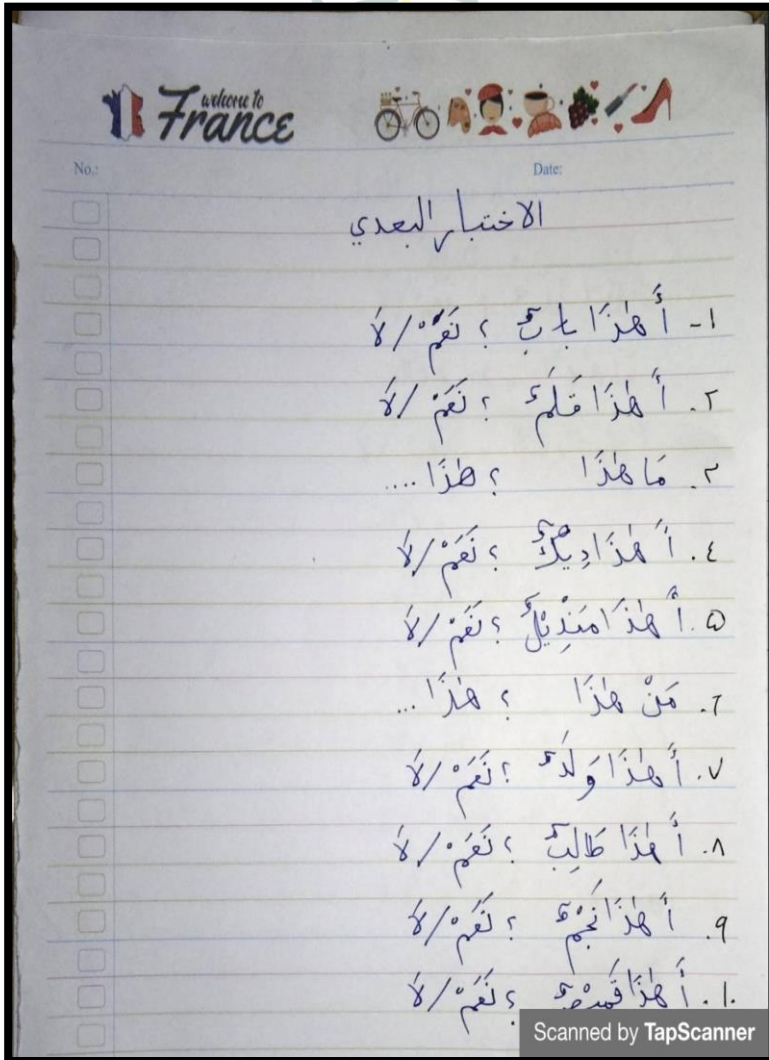 welcome to
France
No.:
Date:
الاختبار البعدي
١- أَهٰذَا بَابٌ ؟ نَعَمْ/لَا
٢. أَهٰذَا قَلَمٌ ؟ نَعَمْ/لَا
٣. مَا هٰذَا ؟ هٰذَا ....
٤. أَهٰذَا دِيكٌ ؟ نَعَمْ/لَا
۵. أَهٰذَا مَنْذِيْلٌ ؟ نَعَمْ/لَا
٦. مَنْ هٰذَا ؟ هٰذَا ...
٧. أَهٰذَا وَلَدٌ ؟ نَعَمْ/لَا
٨. أَهٰذَا طَالِبٌ ؟ نَعَمْ/لَا
٩. أَهٰذَا نَجْمٌ ؟ نَعَمْ/لَا
١٠. أَهٰذَا قَمِيْصٌ ؟ نَعَمْ/لَا
Scanned by TapScanner